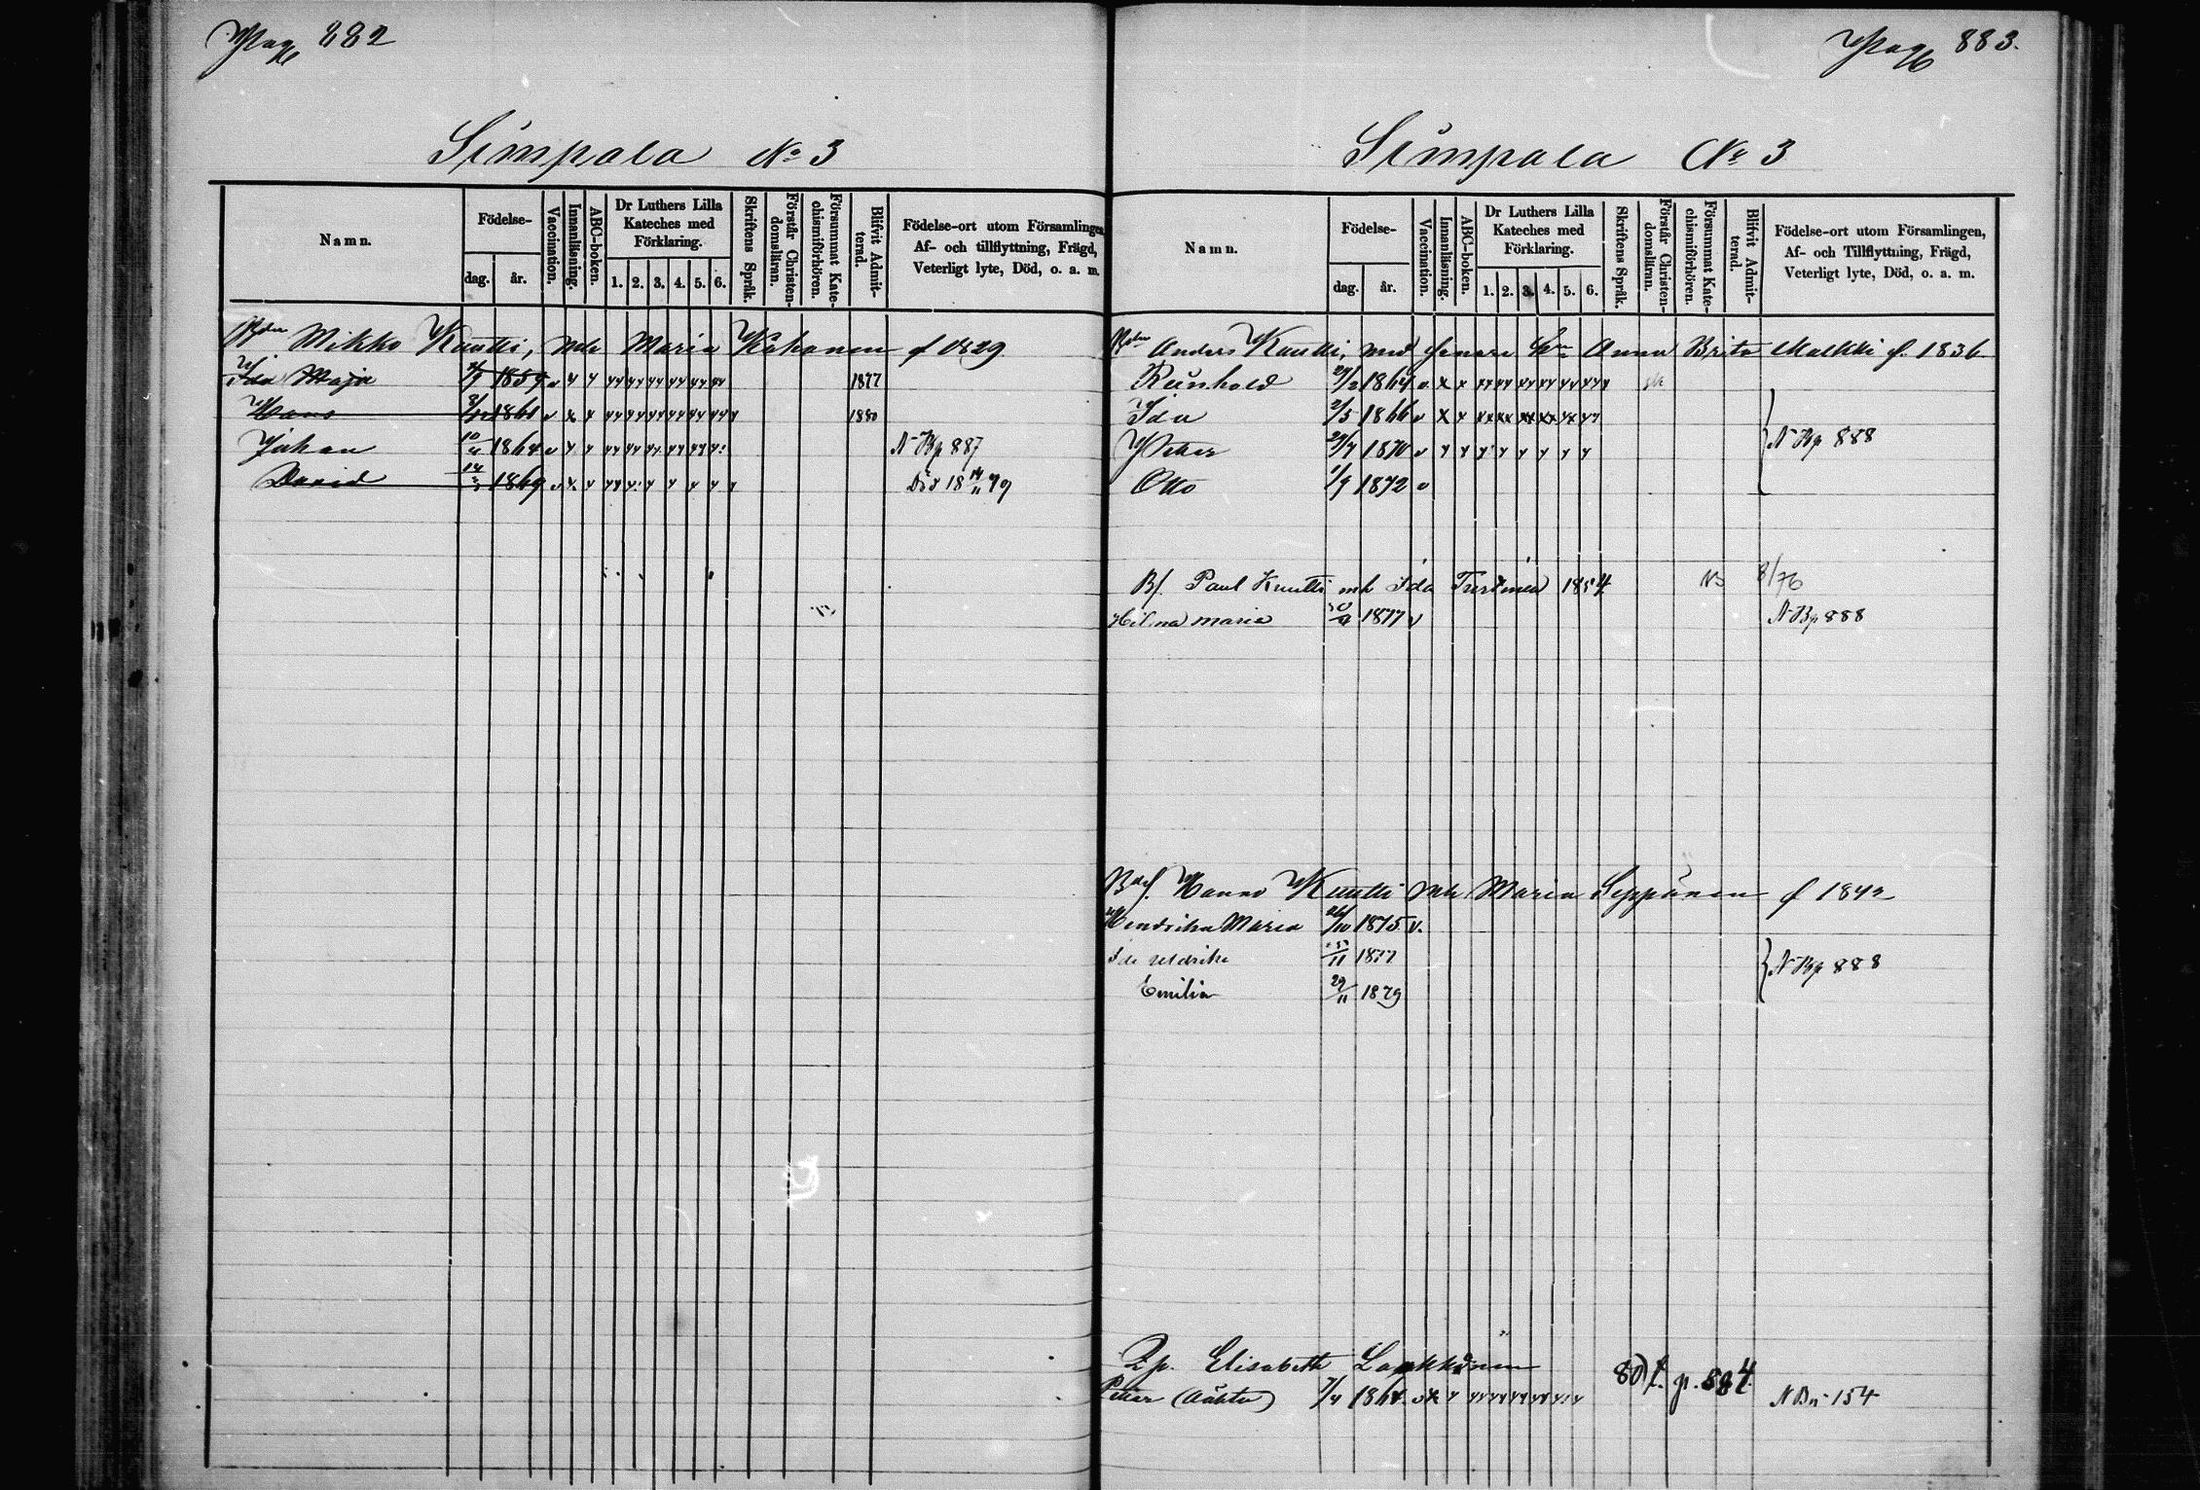 Pag 882
Simpala No 3
Namn.
Födelse-
dag.
år.
Vaccination.
Innanläsning.
ABC-boken.
Dr Luthers Lilla
Kateches med
Förklaring.
1. 2. 3. 4. 5. 6.
Skriftens Språk.
Förstår Christen-
domsläran.
Försummat Kate-
chismiförhören.
Blifvit Admit-
terad.
Födelse-ort utom Församlingen,
Af- och tillflyttning, Frägd,
Veterligt lyte, Död, o. a. m.
Mikko Knutti, mh Maria Kähönen f 1829
Ida Maja 1859 v 1877
Hans 1861 v 1880
Johan 10/4 1864 v N Bp 887
David 1869 v Död 18 14/11 79
Pag 883.
Simpala No 3
Namn.
Födelse-
dag.
år.
Vaccination.
Innanläsning.
ABC-boken.
Dr Luthers Lilla
Kateches med
Förklaring.
1. 2. 3. 4. 5. 6.
Skriftens Språk.
Förstår Christen-
domsläran.
Försummat Kate-
chismiförhören.
Blifvit Admit-
terad.
Födelse-ort utom Församlingen,
Af- och Tillflyttning, Frägd,
Veterligt lyte, Död, o. a. m.
Anders Knutti, med senare Anna Brita Malkki f. 1836
Reinhold 29/2 1864 v
Ida 2/5 1866 v
Peter 29/7 1870 v
N Bp 888
Otto 1/9 1872 v
Bf. Paul Knutti mh Ida 1854 8/76
Hilma maria 1877 v N Bp 888
Hanno Knutti mh Maria Seppänen f 1842
Hendrika Maria 26/10 1875 v.
Ida 1877 N Bp 888
Emilia 29/11 1879
Elisabeth
Peter 7/4 1864 p. 884 154